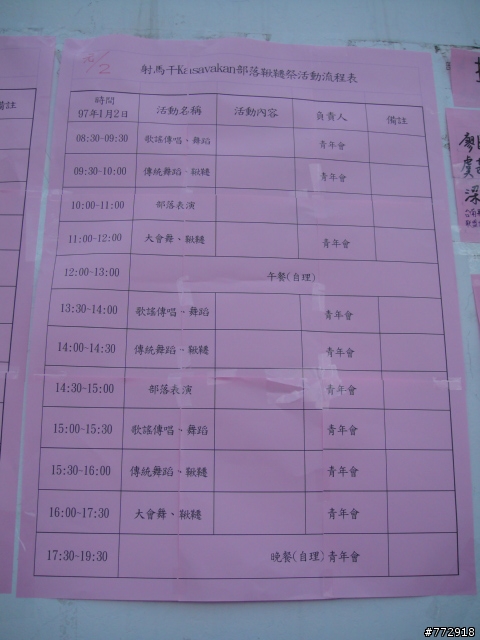 1/2
射馬干Kasavakan部落鞦韆祭活動流程表
時間
97年1月2日
活動名稱 活動內容 負責人 備註
08:30~09:30 歌謠傳唱、舞蹈 青年會
09:30~10:00 傳統舞蹈、鞦韆 青年會
10:00~11:00 部落表演
11:00~12:00 大會舞、鞦韆 青年會
12:00~13:00 午餐(自理)
13:30~14:00 歌謠傳唱、舞蹈 青年會
14:00~14:30 傳統舞蹈、鞦韆 青年會
14:30~15:00 部落表演 青年會
15:00~15:30 歌謠傳唱、舞蹈 青年會
15:30~16:00 傳統舞蹈、鞦韆 青年會
16:00~17:30 大會舞、鞦韆 青年會
17:30~19:30 晚餐(自理)青年會
備註
深
#772918